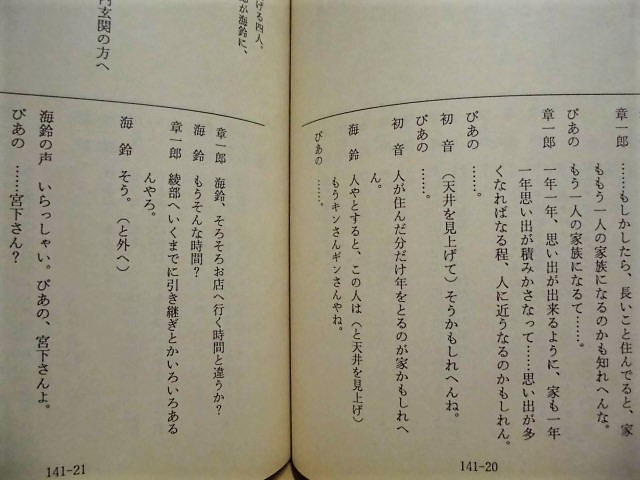 章一郎　……もしかしたら、長いこと住んでると、家
ももう一人の家族になるのかも知れへんな。
ぴあの　もう一人の家族になるて……。
章一郎　一年一年、思い出が出来るように、家も一年
一年思い出が積みかさなって……思い出が多
くなればなる程、人に近うなるのかもしれん。
ぴあの　……。
初　音　（天井を見上げて）そうかもしれへんね。
ぴあの　……。
初　音　人が住んだ分だけ年をとるのが家かもしれへ
ん。
海　鈴　人やとすると、この人は（と天井を見上げ）
もうキンさんギンさんやね。
ぴあの　……。
141-20
ける四人、
が海鈴に、
玄関の方へ
章一郎　海鈴、そろそろお店へ行く時間と違うか？
海　鈴　もうそんな時間？
章一郎　綾部へいくまでに引き継ぎとかいろいろある
んやろ。
海　鈴　そう。（と外へ）
海鈴の声　いらっしゃい。ぴあの、宮下さんよ。
ぴあの　……宮下さん？
141-21